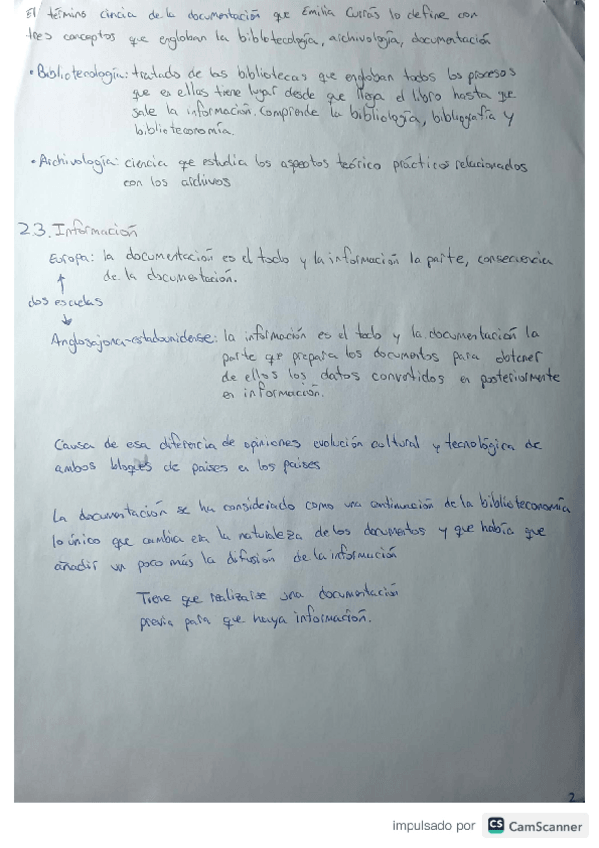 El término ciencia de la documentación que Emilia Currás lo define con
tres conceptos que engloban la bibliotecología, archivología, documentación
• Bibliotecología: tratado de las bibliotecas que engloban todos los procesos
que es ellas tiene lugar desde que llega el libro hasta que
sale la información. Comprende la bibliología, bibliografía y
biblioteconomía.
• Archivología: ciencia que estudia los aspectos teórico prácticos relacionados
con los archivos
2.3. Información
Europa: la documentación es el todo y la información la parte, consecuencia
de la documentación.
dos escuelas
Anglosajona-estadounidense: la información es el todo y la documentación la
parte que prepara los documentos para obtener
de ellos los datos convertidos en posteriormente
en información.
Causa de esa diferencia de opiniones evolución cultural y tecnológica de
ambos bloques de paises en los paises
La documentación se ha considerado como una continuación de la biblioteconomía
lo único que cambia era la naturaleza de los documentos y que había que
añadir un poco más la difusión de la información
Tiene que realizarse una documentación
previa para que haya información.
2
impulsado por CS CamScanner